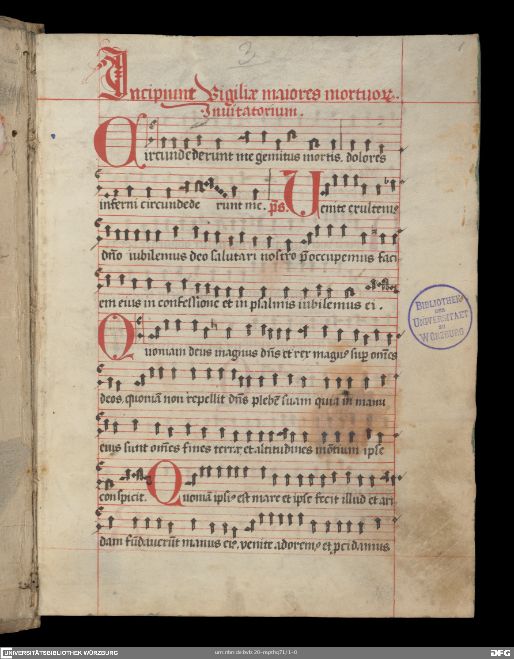 3
1
Incipiunt Vigiliæ maiores mortuoꝝ.
Inuitatorium.
Circundederunt me gemitus mortis. dolores
inferni circundede runt me. p̄s. Uenite exultemꝰ
dn̄o iubilemus deo salutari nostro p̄occupemus faci
em eius in confessione et in psalmis iubilemus ei.
Quoniam deus magnus dn̄s et rex magnꝰ sup̄ om̄es
deos, quoniā non repellit dn̄s plebē suam quia in manu
eius sunt om̄es fines terræ et altitudines mōtium ipse
conspicit. Quoniā ipsiꝰ est mare et ipse fecit illud et ari
dam fūdauerūt manus eiꝰ, venite adoremꝰ et p̄cidamus
BIBLIOTHEK
DER
UNIVERSITAET
ZU
WÜRZBURG
UNIVERSITÄTSBIBLIOTHEK WÜRZBURG
urn:nbn:de:bvb:20-mpthq71/1-0
DFG